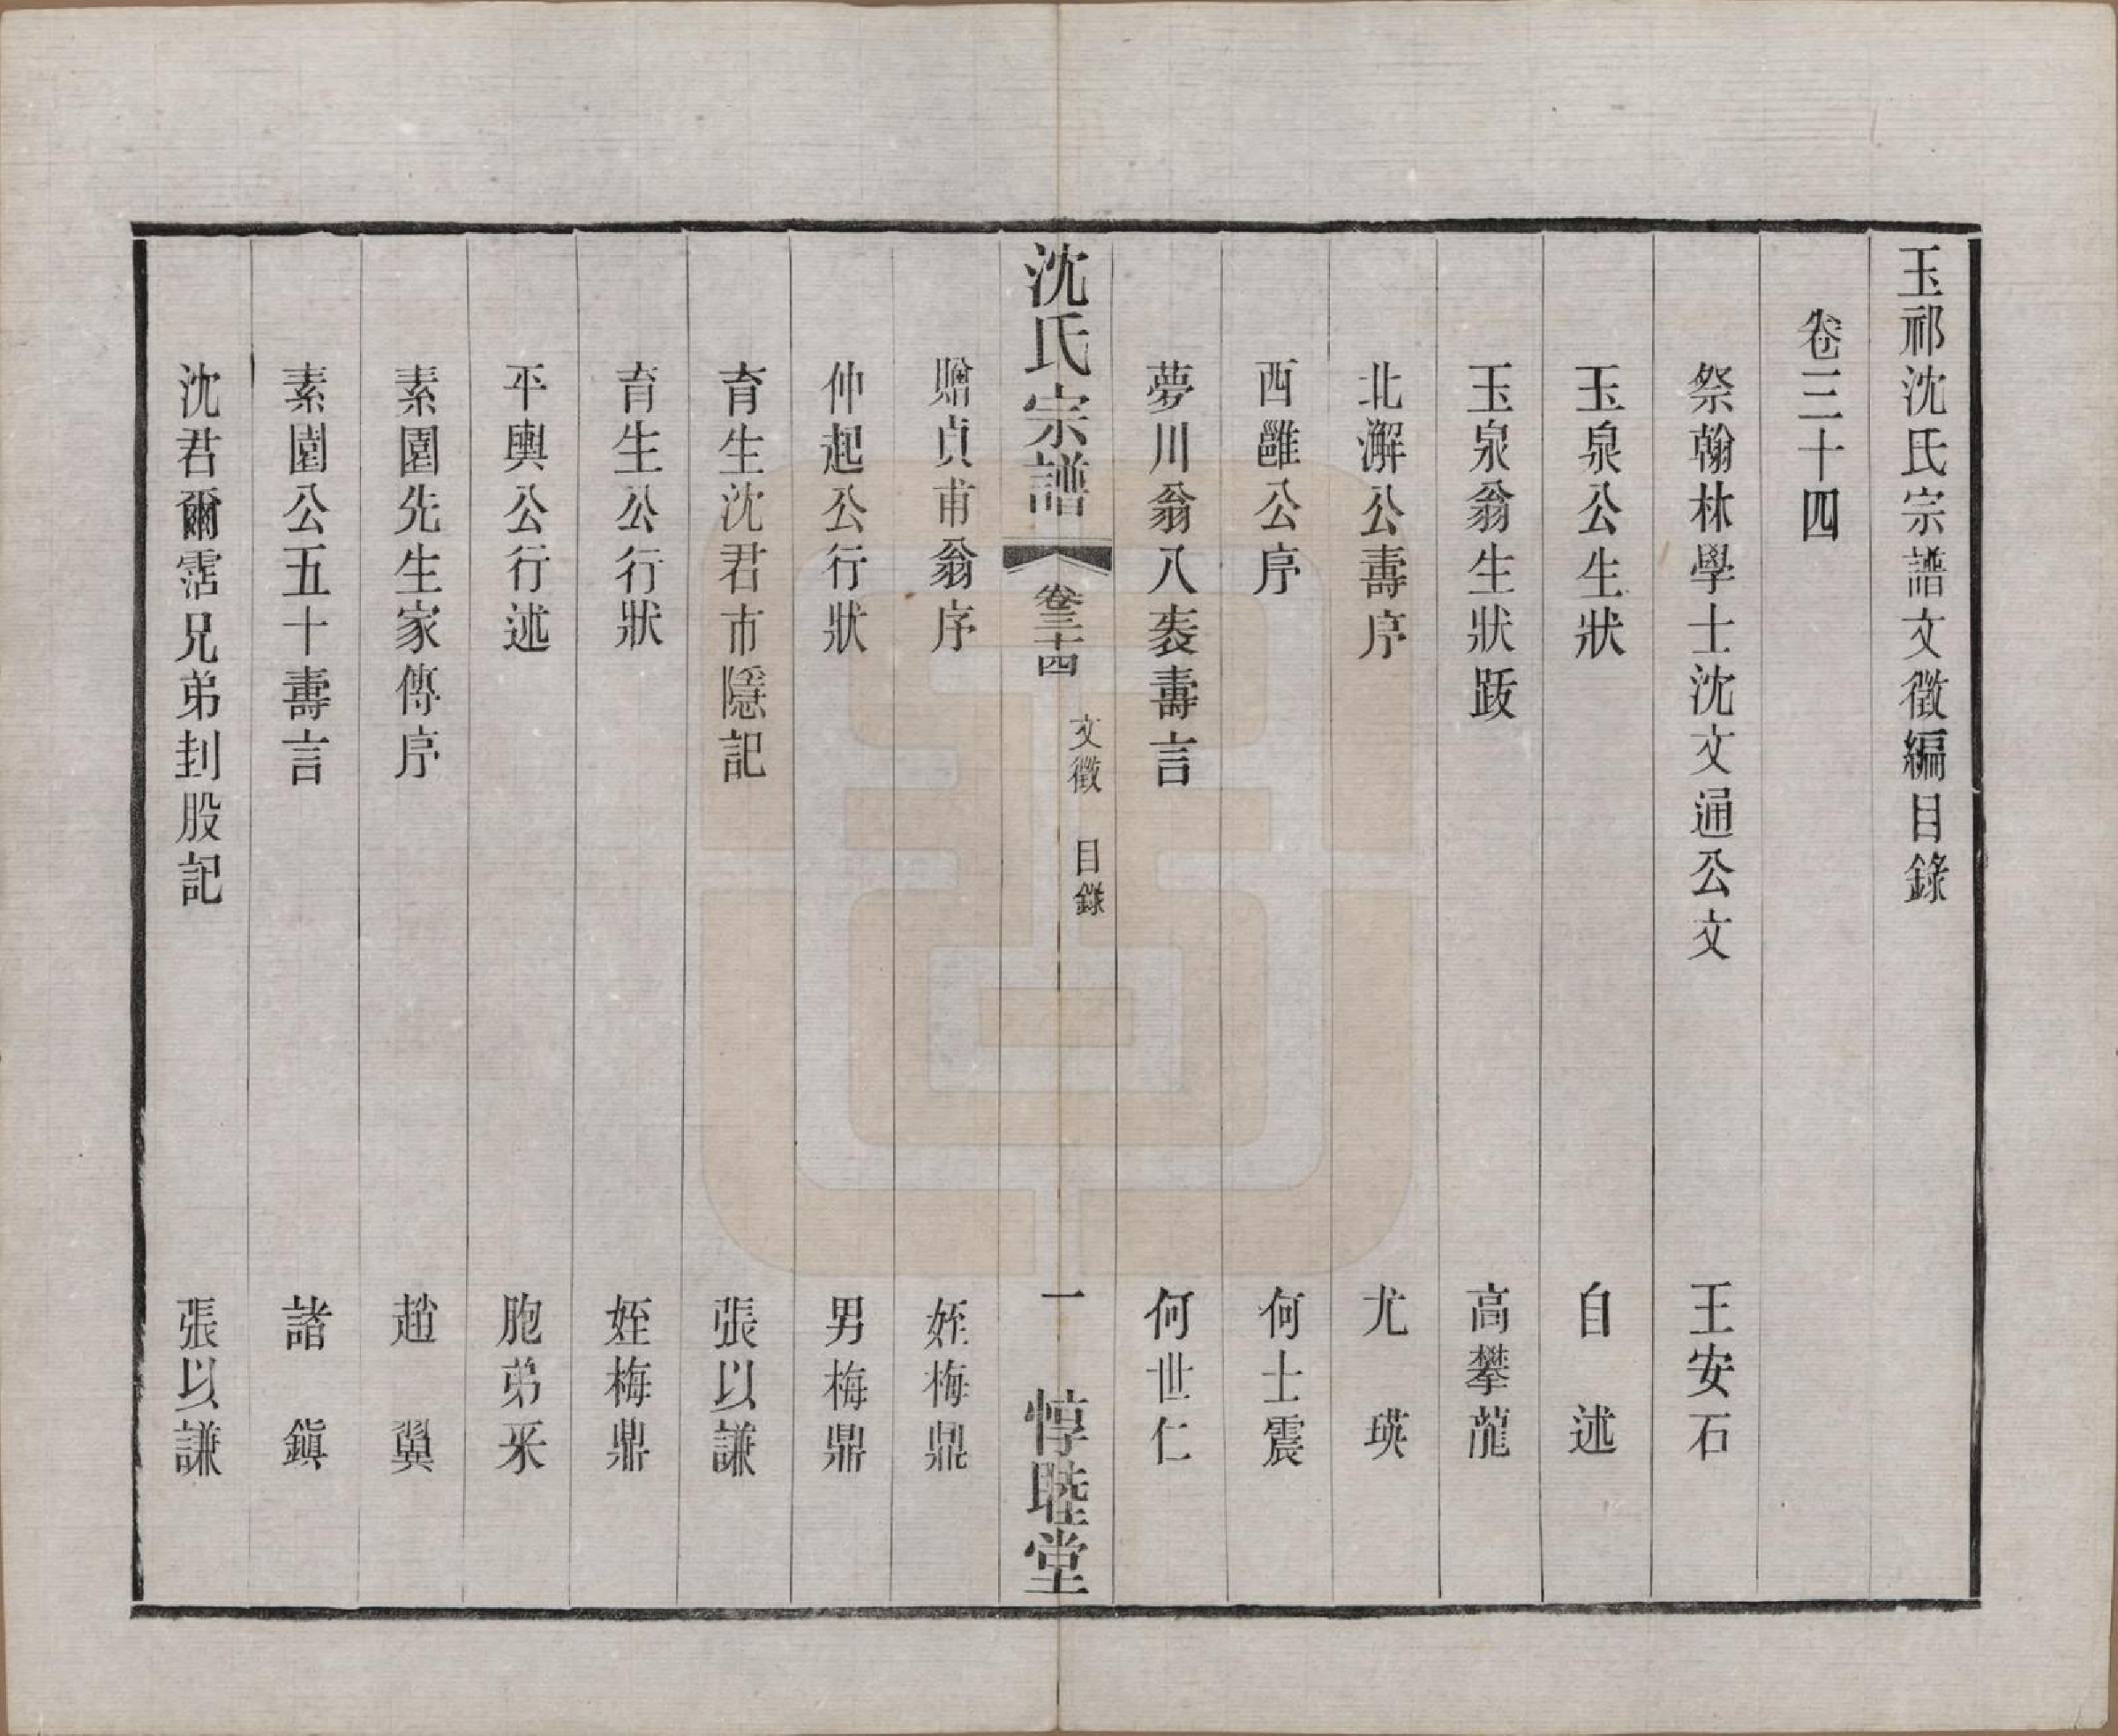 玉祁沈氏宗譜文徵編目錄
卷三十四
祭翰林學士沈文通公文　王安石
玉泉公生狀　自述
玉泉翁生狀跋　高攀龍
北澥公壽序　尤瑛
西雝公序　何士震
夢川翁八袠壽言　何世仁
沈氏宗譜　卷三十四　文徵　目錄　一　惇睦堂
贈貞甫翁序　姪梅鼎
仲起公行狀　男梅鼎
育生沈君市隱記　張以謙
育生公行狀　姪梅鼎
平輿公行述　胞弟釆
素園先生家傳序　趙翼
素園公五十壽言　諸鎮
沈君爾霑兄弟刲股記　張以謙